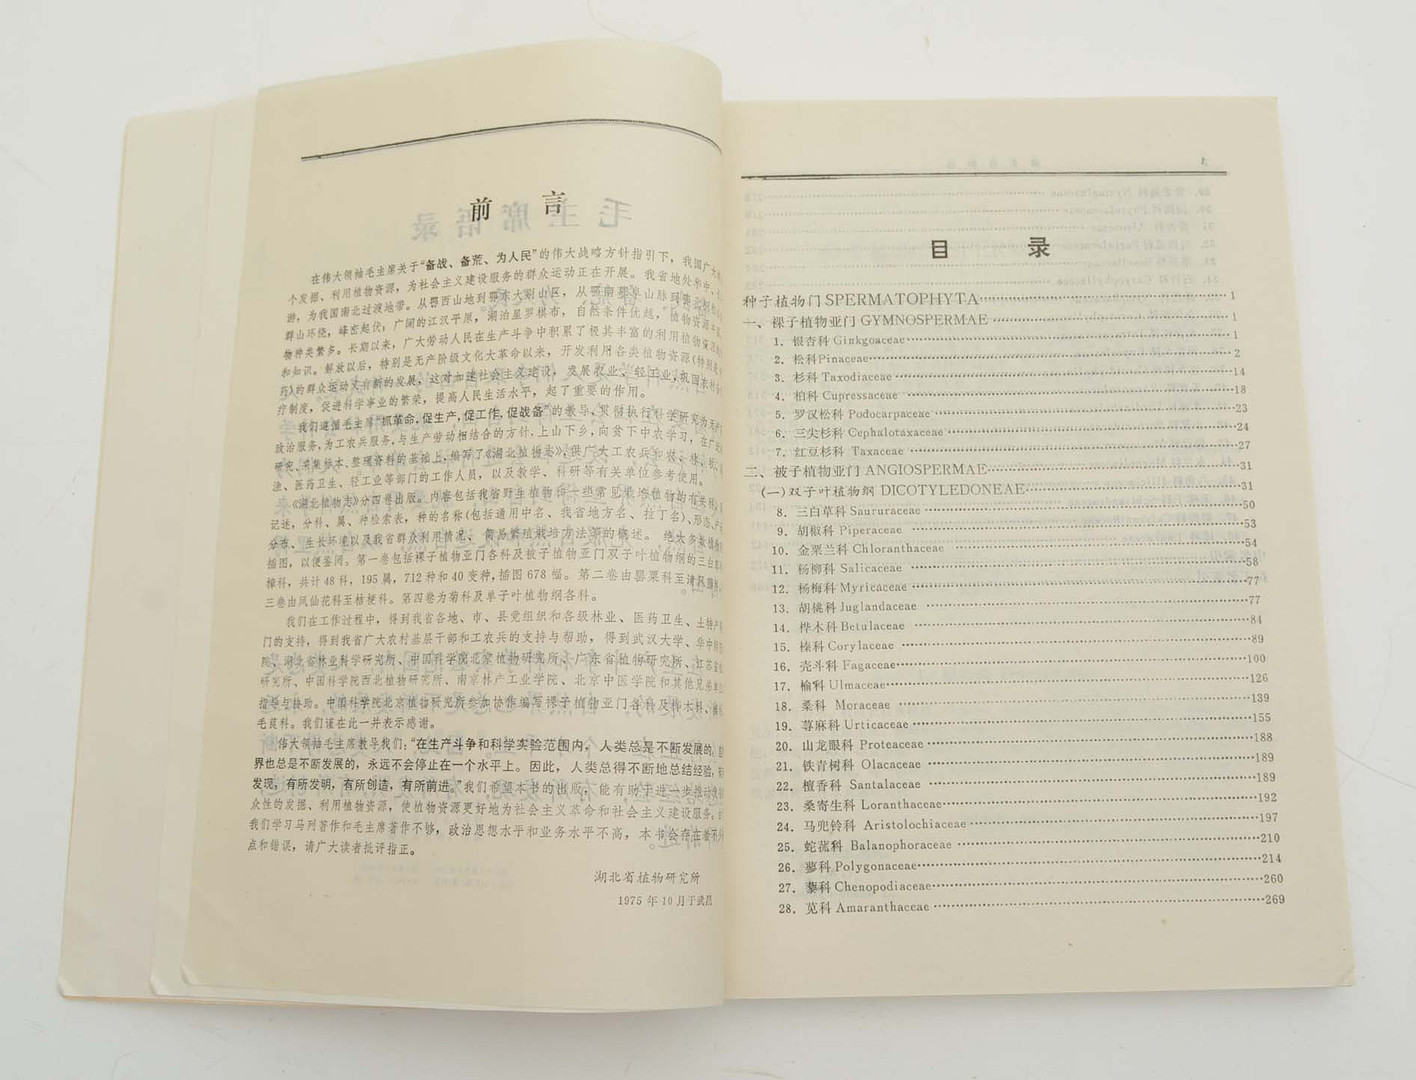 前言
在伟大领袖毛主席关于“备战、备荒、为人民”的伟大战略方针指引下，我国广大
个发掘、利用植物资源，为社会主义建设服务的群众运动正在开展。我省地处华中，
游，为我国南北过渡地带。从鄂西山地到鄂东大别山区，从鄂南
群山环绕，峰密起伏；广阔的江汉平原，湖泊星罗棋布，自然条件优越，植物资源丰富，
物种类繁多。长期以来，广大劳动人民在生产斗争中积累了极其丰富的利用植物资源的
和知识。解放以后，特别是无产阶级文化大革命以来，开发利用各类植物资源(特别是
药)的群众运动又有新的发展，这对加速社会主义建设，发展农业、轻工业，巩固农村
疗制度，促进科学事业的繁荣，提高人民生活水平，起了重要的作用。
我们遵循毛主席“抓革命，促生产，促工作，促战备”的教导，贯彻执行科学研究为无产
政治服务，为工农兵服务，与生产劳动相结合的方针，上山下乡，向贫下中农学习，在广泛
研究、采集标本、整理资料的基础上，编写了《湖北植物志》，供广大工农兵和农、林、牧、
法、医药卫生、轻工业等部门的工作人员，以及教学、科研等有关单位参考使用。
《湖北植物志》分四卷出版。内容包括我省野生植物和一些常见栽培植物的有关科、属
记述，分科、属、种检索表，种的名称(包括通用中名、我省地方名、拉丁名)、形态、产
分布、生长环境以及我省群众利用情况、简易繁殖栽培方法等的概述。绝大多数植物
插图，以便鉴阅。第一卷包括裸子植物亚门各科及被子植物亚门双子叶植物纲的三白草科
樟科，共计48科，195属，712种和40变种，插图678幅。第二卷由罂粟科至
三卷由凤仙花科至桔梗科。第四卷为菊科及单子叶植物纲各科。
我们在工作过程中，得到我省各地、市、县党组织和各级林业、医药卫生、土特产
门的支持，得到我省广大农村基层干部和工农兵的支持与帮助，得到武汉大学、华中师
院、湖北省林业科学研究所、中国科学院北京植物研究所、广东省植物研究所、江苏省
研究所、中国科学院西北植物研究所、南京林产工业学院、北京中医学院和其他兄弟单位
指导与协助。中国科学院北京植物研究所参加协作编写裸子植物亚门各科及桦木科、
毛茛科。我们谨在此一并表示感谢。
伟大领袖毛主席教导我们：“在生产斗争和科学实验范围内，人类总是不断发展的，自
界也总是不断发展的，永远不会停止在一个水平上。因此，人类总得不断地总结经验，有
发现，有所发明，有所创造，有所前进。”我们希望本书的出版，能有助于进一步推动
众性的发掘、利用植物资源，使植物资源更好地为社会主义革命和社会主义建设服务，
我们学习马列著作和毛主席著作不够，政治思想水平和业务水平不高，本书会存在
点和错误，请广大读者批评指正。
湖北省植物研究所
1975年10月于武昌
目录
种子植物门 SPERMATOPHYTA 1
一、裸子植物亚门 GYMNOSPERMAE 1
1. 银杏科 Ginkgoaceae 1
2. 松科 Pinaceae 2
3. 杉科 Taxodiaceae 14
4. 柏科 Cupressaceae 18
5. 罗汉松科 Podocarpaceae 23
6. 三尖杉科 Cephalotaxaceae 24
7. 红豆杉科 Taxaceae 27
二、被子植物亚门 ANGIOSPERMAE 31
(一)双子叶植物纲 DICOTYLEDONEAE 31
8. 三白草科 Saururaceae 50
9. 胡椒科 Piperaceae 53
10. 金粟兰科 Chloranthaceae 54
11. 杨柳科 Salicaceae 58
12. 杨梅科 Myricaceae 77
13. 胡桃科 Juglandaceae 77
14. 桦木科 Betulaceae 84
15. 榛科 Corylaceae 89
16. 壳斗科 Fagaceae 100
17. 榆科 Ulmaceae 126
18. 桑科 Moraceae 139
19. 荨麻科 Urticaceae 155
20. 山龙眼科 Proteaceae 188
21. 铁青树科 Olacaceae 189
22. 檀香科 Santalaceae 189
23. 桑寄生科 Loranthaceae 192
24. 马兜铃科 Aristolochiaceae 197
25. 蛇菰科 Balanophoraceae 210
26. 蓼科 Polygonaceae 214
27. 藜科 Chenopodiaceae 260
28. 苋科 Amaranthaceae 269